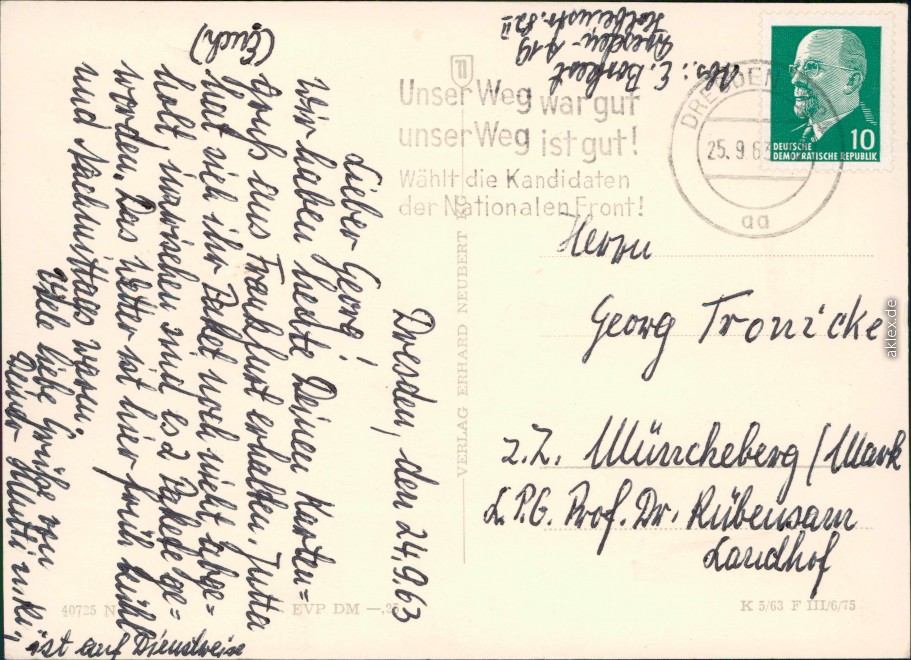 Abs.: E. Borkert
Dresden A 19
Holbeinstr. 82 II
Unser Weg war gut
unser Weg ist gut!
Wählt die Kandidaten
der Nationalen Front!
DRESDEN
25. 9. 63
aa
DEUTSCHE
DEMOKRATISCHE REPUBLIK
10
Dresden, den 24.9.63
Lieber Georg!
Wir haben heute Deinen Karten=
gruß aus Frankfurt erhalten. Jutta
hat sich ihr Paket noch nicht abge=
holt, inzwischen sind es 2 Pakete ge=
worden. Das Wetter ist hier früh kühl
und Nachmittags warm.
Viele liebe Grüße von
Deiner Mutti u.
ist auf Dienstreise
(Euch)
Herrn
Georg Tronicke
z.Z. Müncheberg/Mark
L.P.G. Prof. Dr. Rübensam
Landhof
VERLAG ERHARD NEUBERT KG
40725 N
EVP DM —,25
K 5/63 F III/6/75
aklex.de